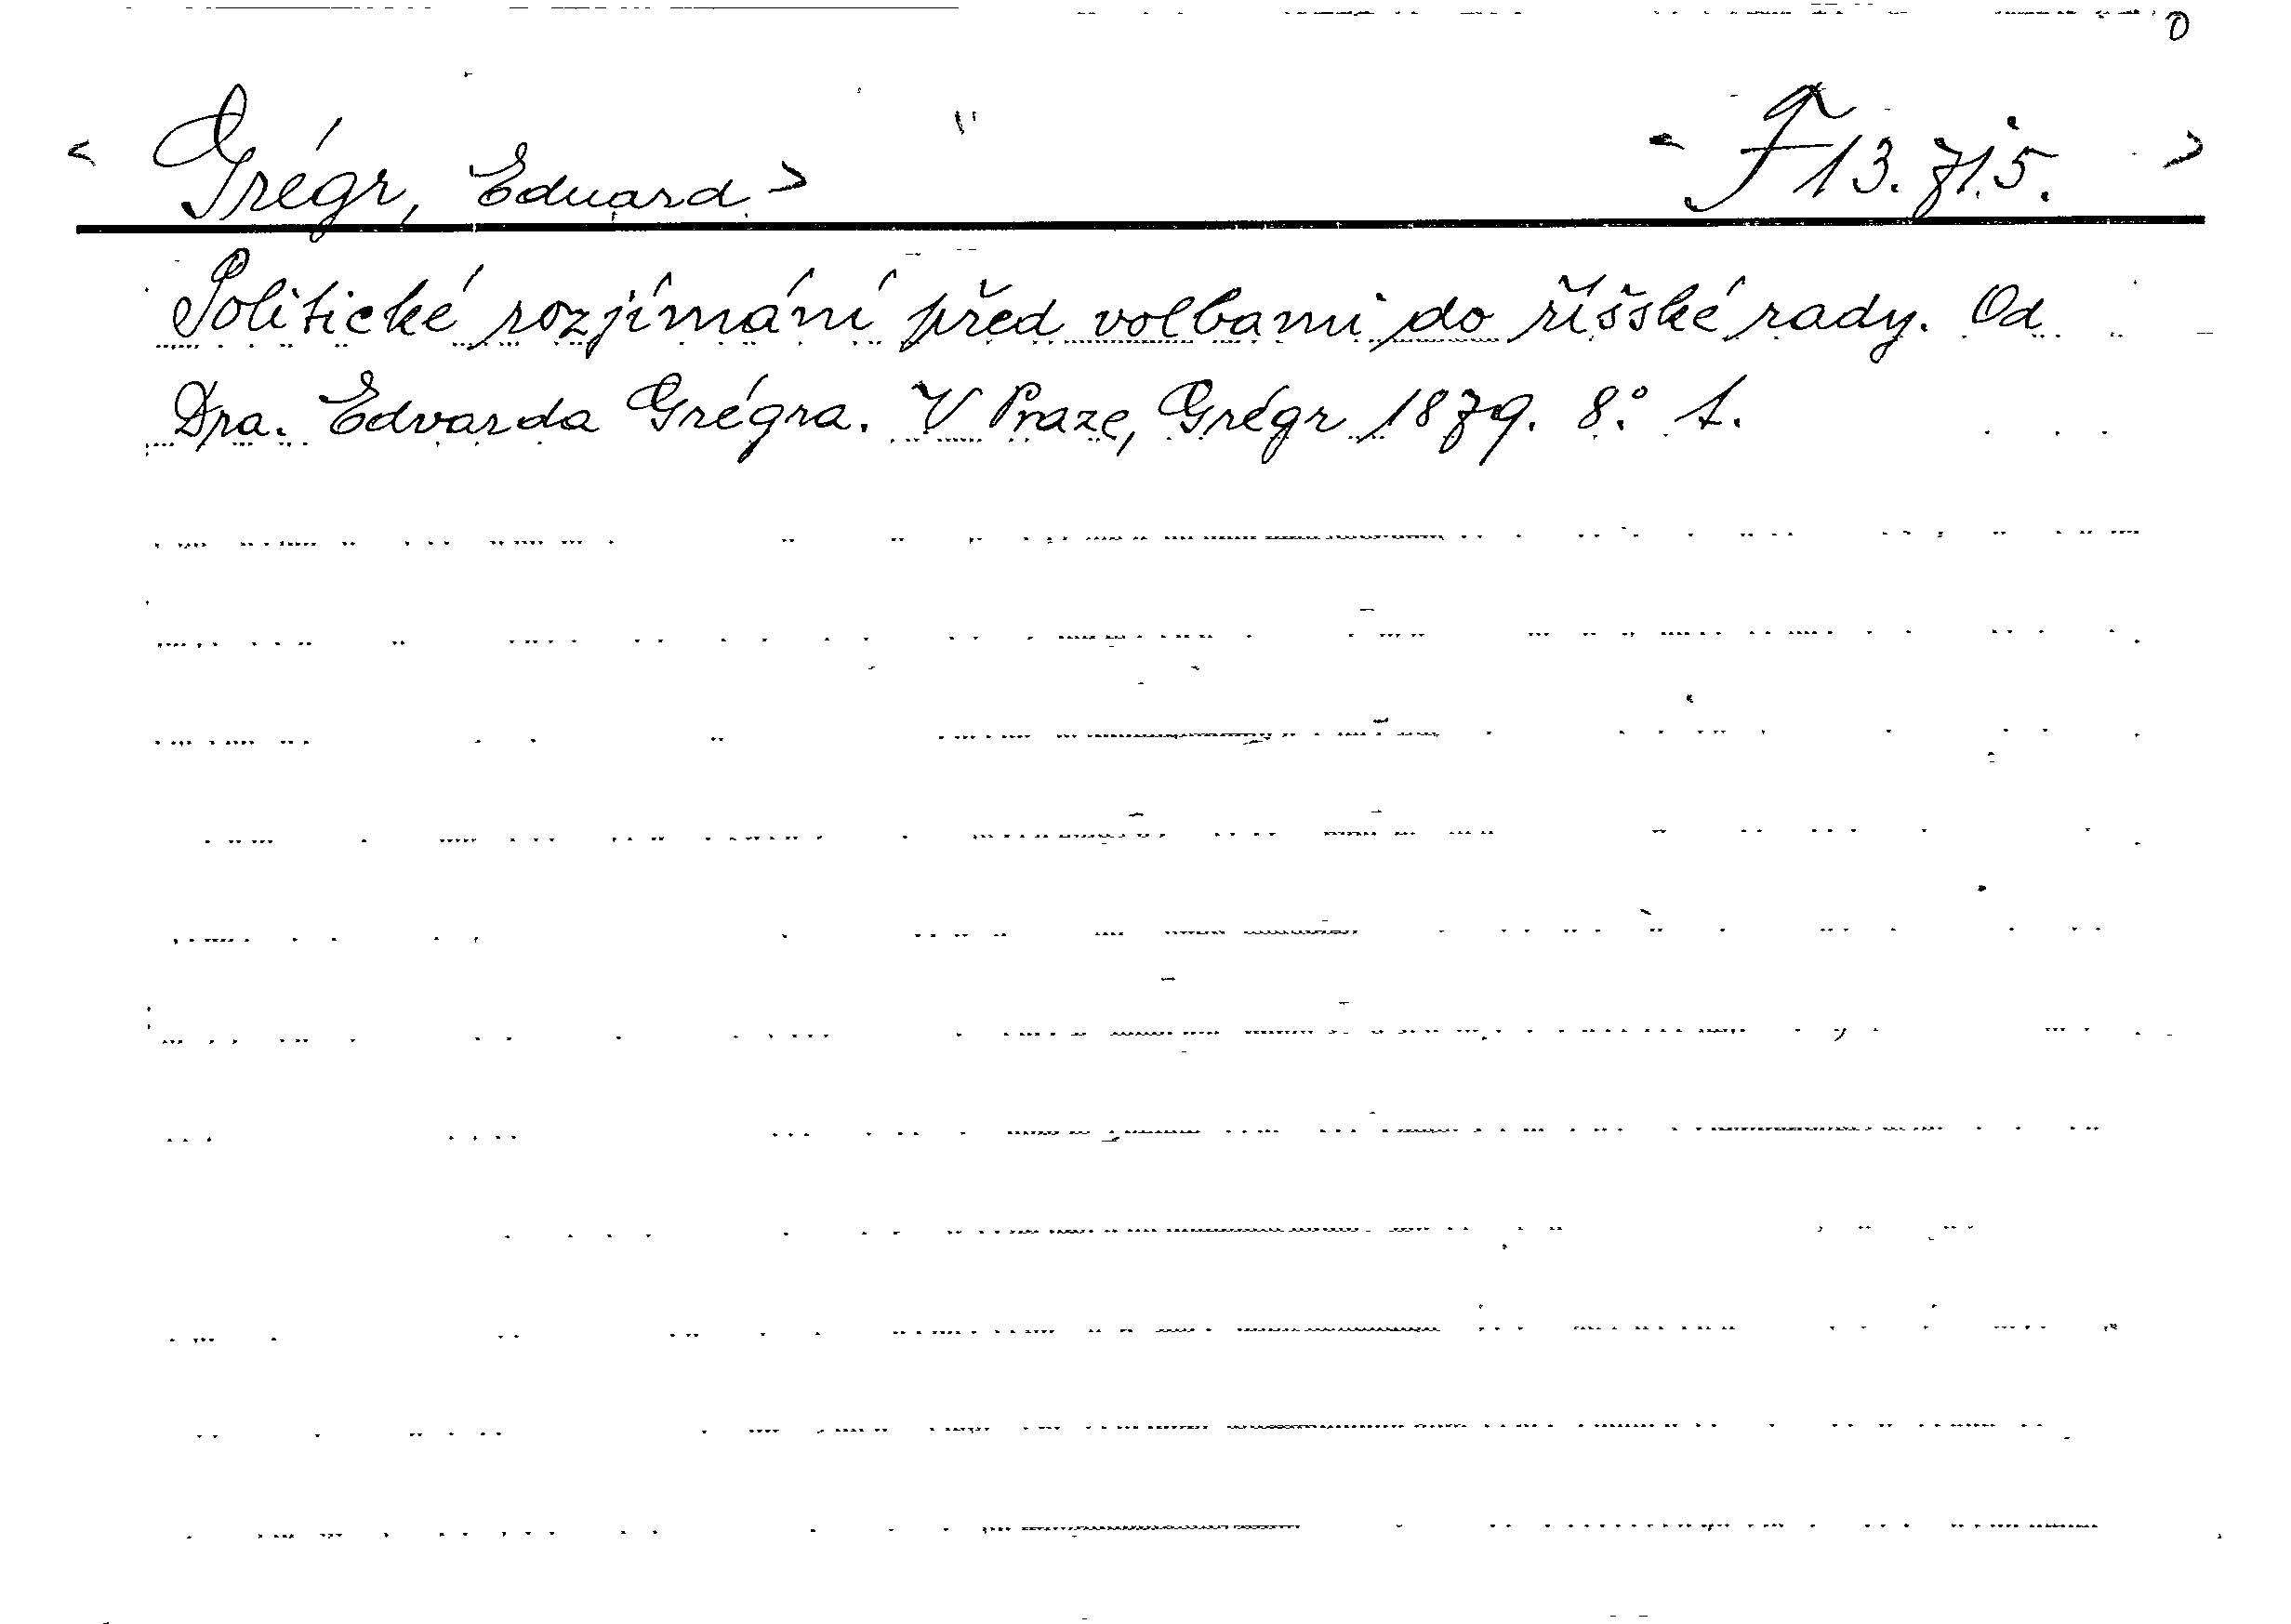 Grégr, Eduard F 13. 715.
Politické rozjímání před volbami do říšské rady. Od
Dra. Edvarda Grégra. V Praze, Grégr 1879. 8.° 1.